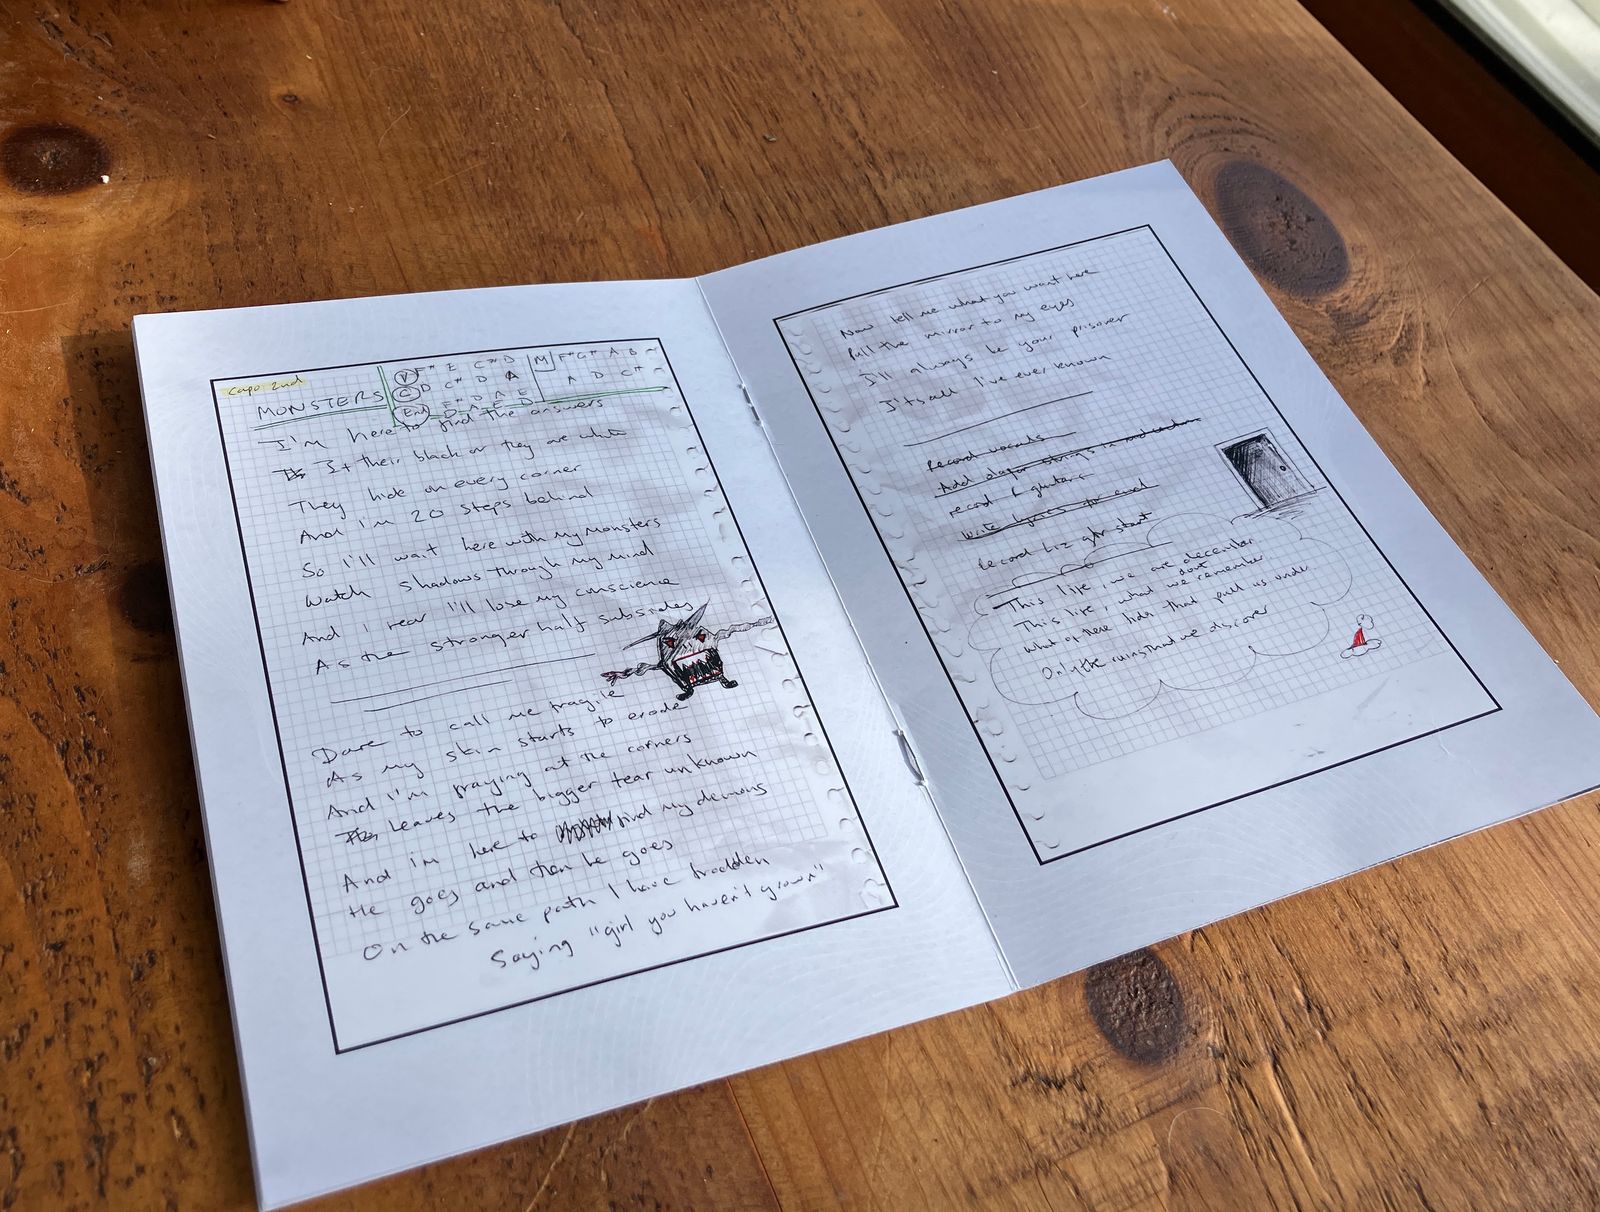 Capo 2nd
MONSTERS
V F# E C# D
C D C# D A
End F# D A E
D A E D
M F# G# A B
A D C#
I'm here to find the answers
Is their black or they are white
They hide on every corner
And I'm 20 steps behind
So I'll wait here with my monsters
Watch shadows through my mind
And I fear I'll lose my conscience
As the stronger half subsides
Dare to call me fragile
As my skin starts to erode
And I'm fraying at the corners
Leaves the bigger tear unknown
And i'm here to find my demons
He goes and then he goes
On the same path I have trodden
Saying "girl you haven't grown"
Now tell me what you want here
Pull the mirror to my eyes
I'll always be your prisoner
It's all I've ever known
Record vocals
Add strings in mid section
record guitars
Write lyrics for end
Record gtr start
This life, we are december
This life, what we dont remember
What of these lids that pull us under
Only the ruins that we discover